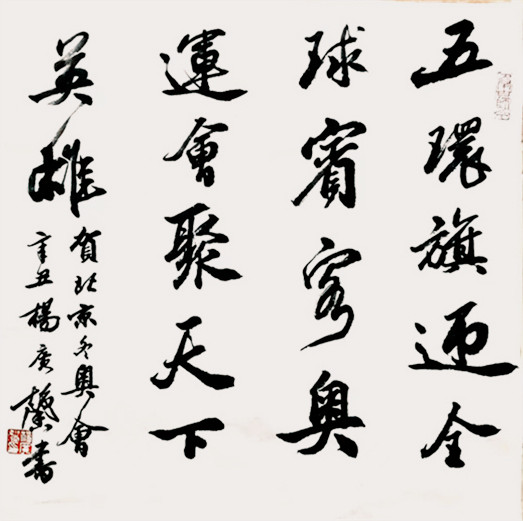 五環旗迎全
球賓客奥
運會聚天下
英雄
賀北京冬奥會
辛丑楊廣蘭書